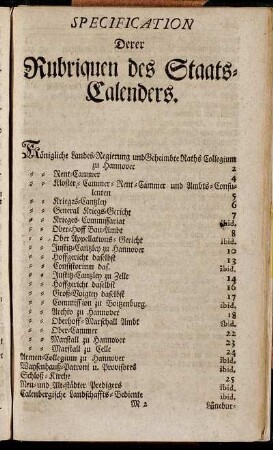 SPECIFICATION
Derer
Rubriquen des Staats-
Calenders.
Königliche Landes-Regierung und Geheimbte Raths Collegium
zu Hannover 2
= = Rent-Cammer 4
= = Kloster-Cammer-Rent-Cammer und Ambts-Consu-
lenten 5
= = Kriegs-Cantzley 6
= = General Kriegs-Gericht 7
= = Krieges-Commissariat ibid.
= = Ober-Hoff Bau-Ambt 8
= = Ober Appellations-Gericht ibid.
= = Justitz-Cantzley zu Hannover 10
= = Hoffgericht daselbst 13
= = Consistorium das. ibid.
= = Justitz-Cantzley zu Zelle 14
= = Hoffgericht daselbst 16
= = Groß-Voigtey daselbst 17
= = Commission zu Boitzenburg. ibid.
= = Archiv zu Hannover 18
= = Oberhoff-Marschall Ambt ibid.
= = Ober-Cammer 22
= = Marstall zu Hannover 23
= = Marstall zu Celle 24
Armen-Collegium zu Hannover ibid.
Waysenhauß-Patroni u. Provisores ibid.
Schloß-Kirche 25
Neu-und Altstädter Prediger ibid.
Calenbergische Landschaffts-Bediente ibid.
M 2 Lünebur-